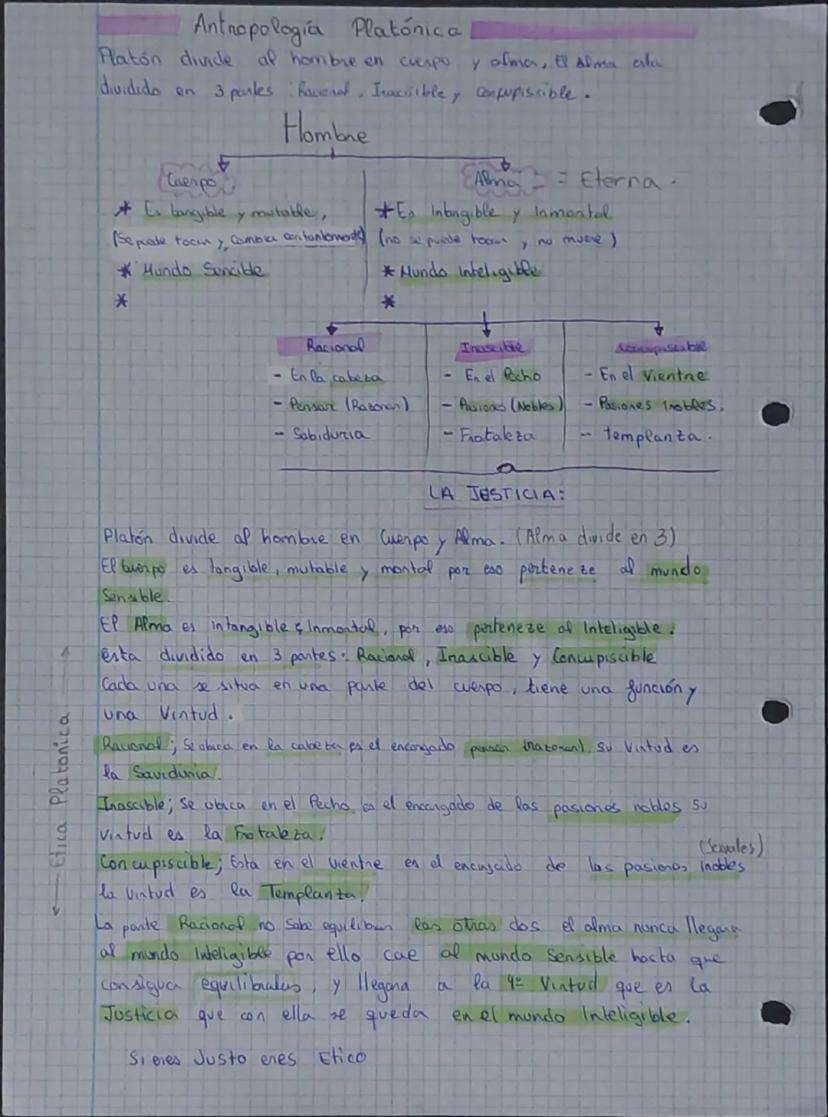 Antropología Platónica
Platón divide al hombre en cuerpo y alma, El Alma esta
dividido en 3 partes: Racional, Irascisible y Conpupiscible.
Hombre
Cuerpo
Alma = Eterna.
* Es tangible y mutable,
(Se puede tocar y cambia constantemente)
* Mundo Sencible
*
* Es Intangible y Inmortal
(no se puede tocar y no muere)
* Mundo Inteligible
*
Racional
- En la cabeza
- Pensar (Razonar)
- Sabiduria
Irascible
- En el Pecho
- Pasiones (Nobles)
- Frotaleza
Concupiscible
- En el Vientre
- Pasiones Inobles.
- templanza.
LA JUSTICIA:
Platón divide al hombre en Cuerpo y Alma. (Alma divide en 3)
El cuerpo es tangible, mutable y mortal por eso perteneze al mundo
Sensible.
El Alma es intangible e Inmortal, por eso perteneze al Inteligible.
esta dividido en 3 partes: Racional, Irascible y Concupiscible
Cada una se situa en una parte del cuerpo, tiene una función y
una Virtud.
Racional; Se ubica en la cabeza es el encargado pensar (razonar) su virtud es
la Saviduria.
Irascible; Se ubica en el Pecho es el encargado de las pasiones nobles su
virtud es la Frotaleza.
(Sexuales)
Concupiscible; Esta en el vientre es el encargado de las pasiones Inobles
la virtud es la Templanza.
La parte Racional no sabe equilibrar las otras dos el alma nunca llegara
al mundo Inteligible por ello cae al mundo Sensible hasta que
consigua equilibrarlas, y llegara a la 4ª Virtud que es la
Justicia que con ella se queda en el mundo Inteligible.
Si eres Justo eres Etico
Etica Platonica